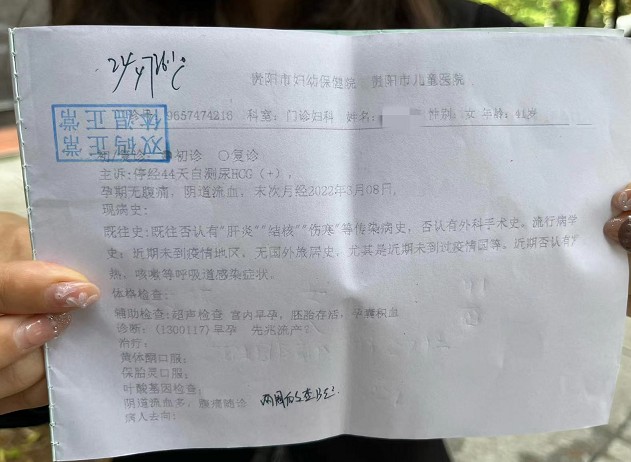 24/4 36.1℃
贵阳市妇幼保健院 贵阳市儿童医院
9657474216 科室：门诊妇科 姓名： 性别：女 年龄：41岁
双码正常
体温正常
初/复诊：初诊 ○复诊
主诉：停经44天自测尿HCG（+），
孕期无腹痛，阴道流血，末次月经2022年3月08日，
现病史：
既往史：既往否认有"肝炎""结核""伤寒"等传染病史，否认有外科手术史。流行病学
史：近期未到疫情地区，无国外旅居史，尤其是近期未到过疫情国等。近期否认有发
热、咳嗽等呼吸道感染症状。
体格检查：
辅助检查：超声检查 宫内早孕，胚胎存活，孕囊积血
诊断：（1300117）早孕 先兆流产
治疗：
黄体酮口服；
保胎灵口服；
叶酸基因检查；
阴道流血多，腹痛随诊 两周后复查B超
病人去向：